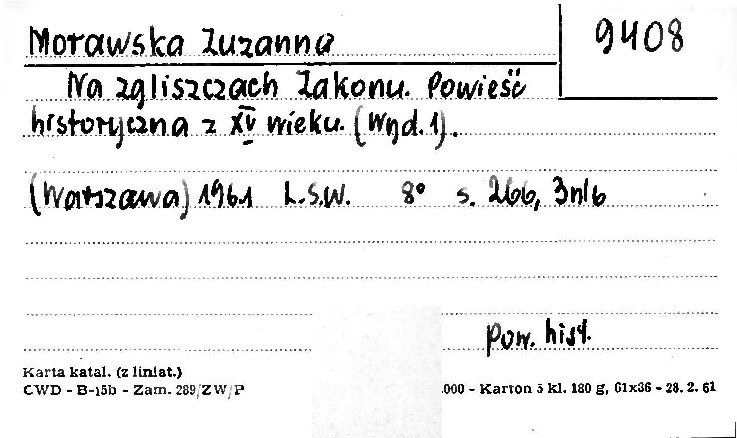 Morawska Zuzanna
9408
Na zgliszczach Zakonu. Powieść
historyczna z XV wieku. (Wyd. 1).
(Warszawa) 1961 L.S.W. 8° s. 266, 3nlb
Pow. hist.
Karta katal. (z liniat.)
CWD - B-15b - Zam. 289/ZW/P
.000 - Karton 5 kl. 180 g, 61x86 - 28. 2. 61